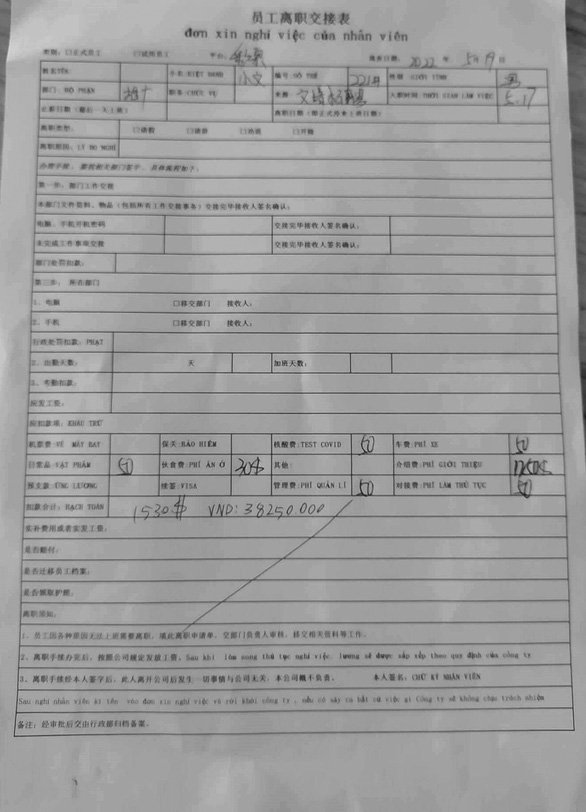 员工离职交接表
đơn xin nghỉ việc của nhân viên
类别：□正式员工 □试用员工 2022 年 5月19日
姓名TÊN 小文 编号:SỐ THẺ 性别 GIỚI TÍNH 男
部门：BỘ PHẬN 职务:CHỨC VỤ 入职时间:THỜI GIAN LÀM VIỆC 5.17
离职类型：
离职原因：LÍ DO NGHỈ
第一步：部门工作交接
本部门文件资料、物品（包括所有工作交接事务）交接完毕接收人签名确认：
电脑、手机开机密码 交接完毕接收人签名确认：
未完成工作事项交接 交接完毕接收人签名确认：
部门处罚扣款：
第二步：所在部门
1、电脑 □移交部门 接收人：
2、手机 □移交部门 接收人：
行政处罚扣款：PHẠT
2、出勤天数： 天 加班天数：
3、考勤扣款：
应发工资：
应扣款项：KHẤU TRỪ
机票费:VÉ MÁY BAY 保关:BẢO HIỂM 核酸费:TEST COVID 50 车费:PHÍ XE 50
日常品:VẬT PHẨM 50 伙食费:PHÍ ĂN Ở 30$ 其他: 介绍费:PHÍ GIỚI THIỆU
预支款:ỨNG LƯƠNG 续签:VISA 管理费:PHÍ QUẢN LÍ 50 对接费:PHÍ LÀM THỦ TỤC 50
扣款合计：HẠCH TOÁN 1530$ VND: 38250.000
实补费用或者实发工资：
是否赔付：
是否迁移员工档案：
是否领取护照：
离职须知：
1、员工因各种原因无法上班需要离职，填此离职申请单，交部门负责人审核，移交相关资料等工作。
2、离职手续办完后，按照公司规定发放工资。Sau khi làm song thủ tục nghỉ việc lương sẽ được sắp xếp theo quy định của công ty
3、离职手续经本人签字后，此人离开公司后发生一切事情与公司无关，本公司概不负责。 本人签名：CHỮ KÝ NHÂN VIÊN
Sau nghỉ nhân viên kí tên vào đơn xin nghỉ việc và rời khỏi công ty , nếu có sảy ra bất cứ việc gì Công ty sẽ không chịu trách nhiệm
备注：经审批后交由行政部归档备案。